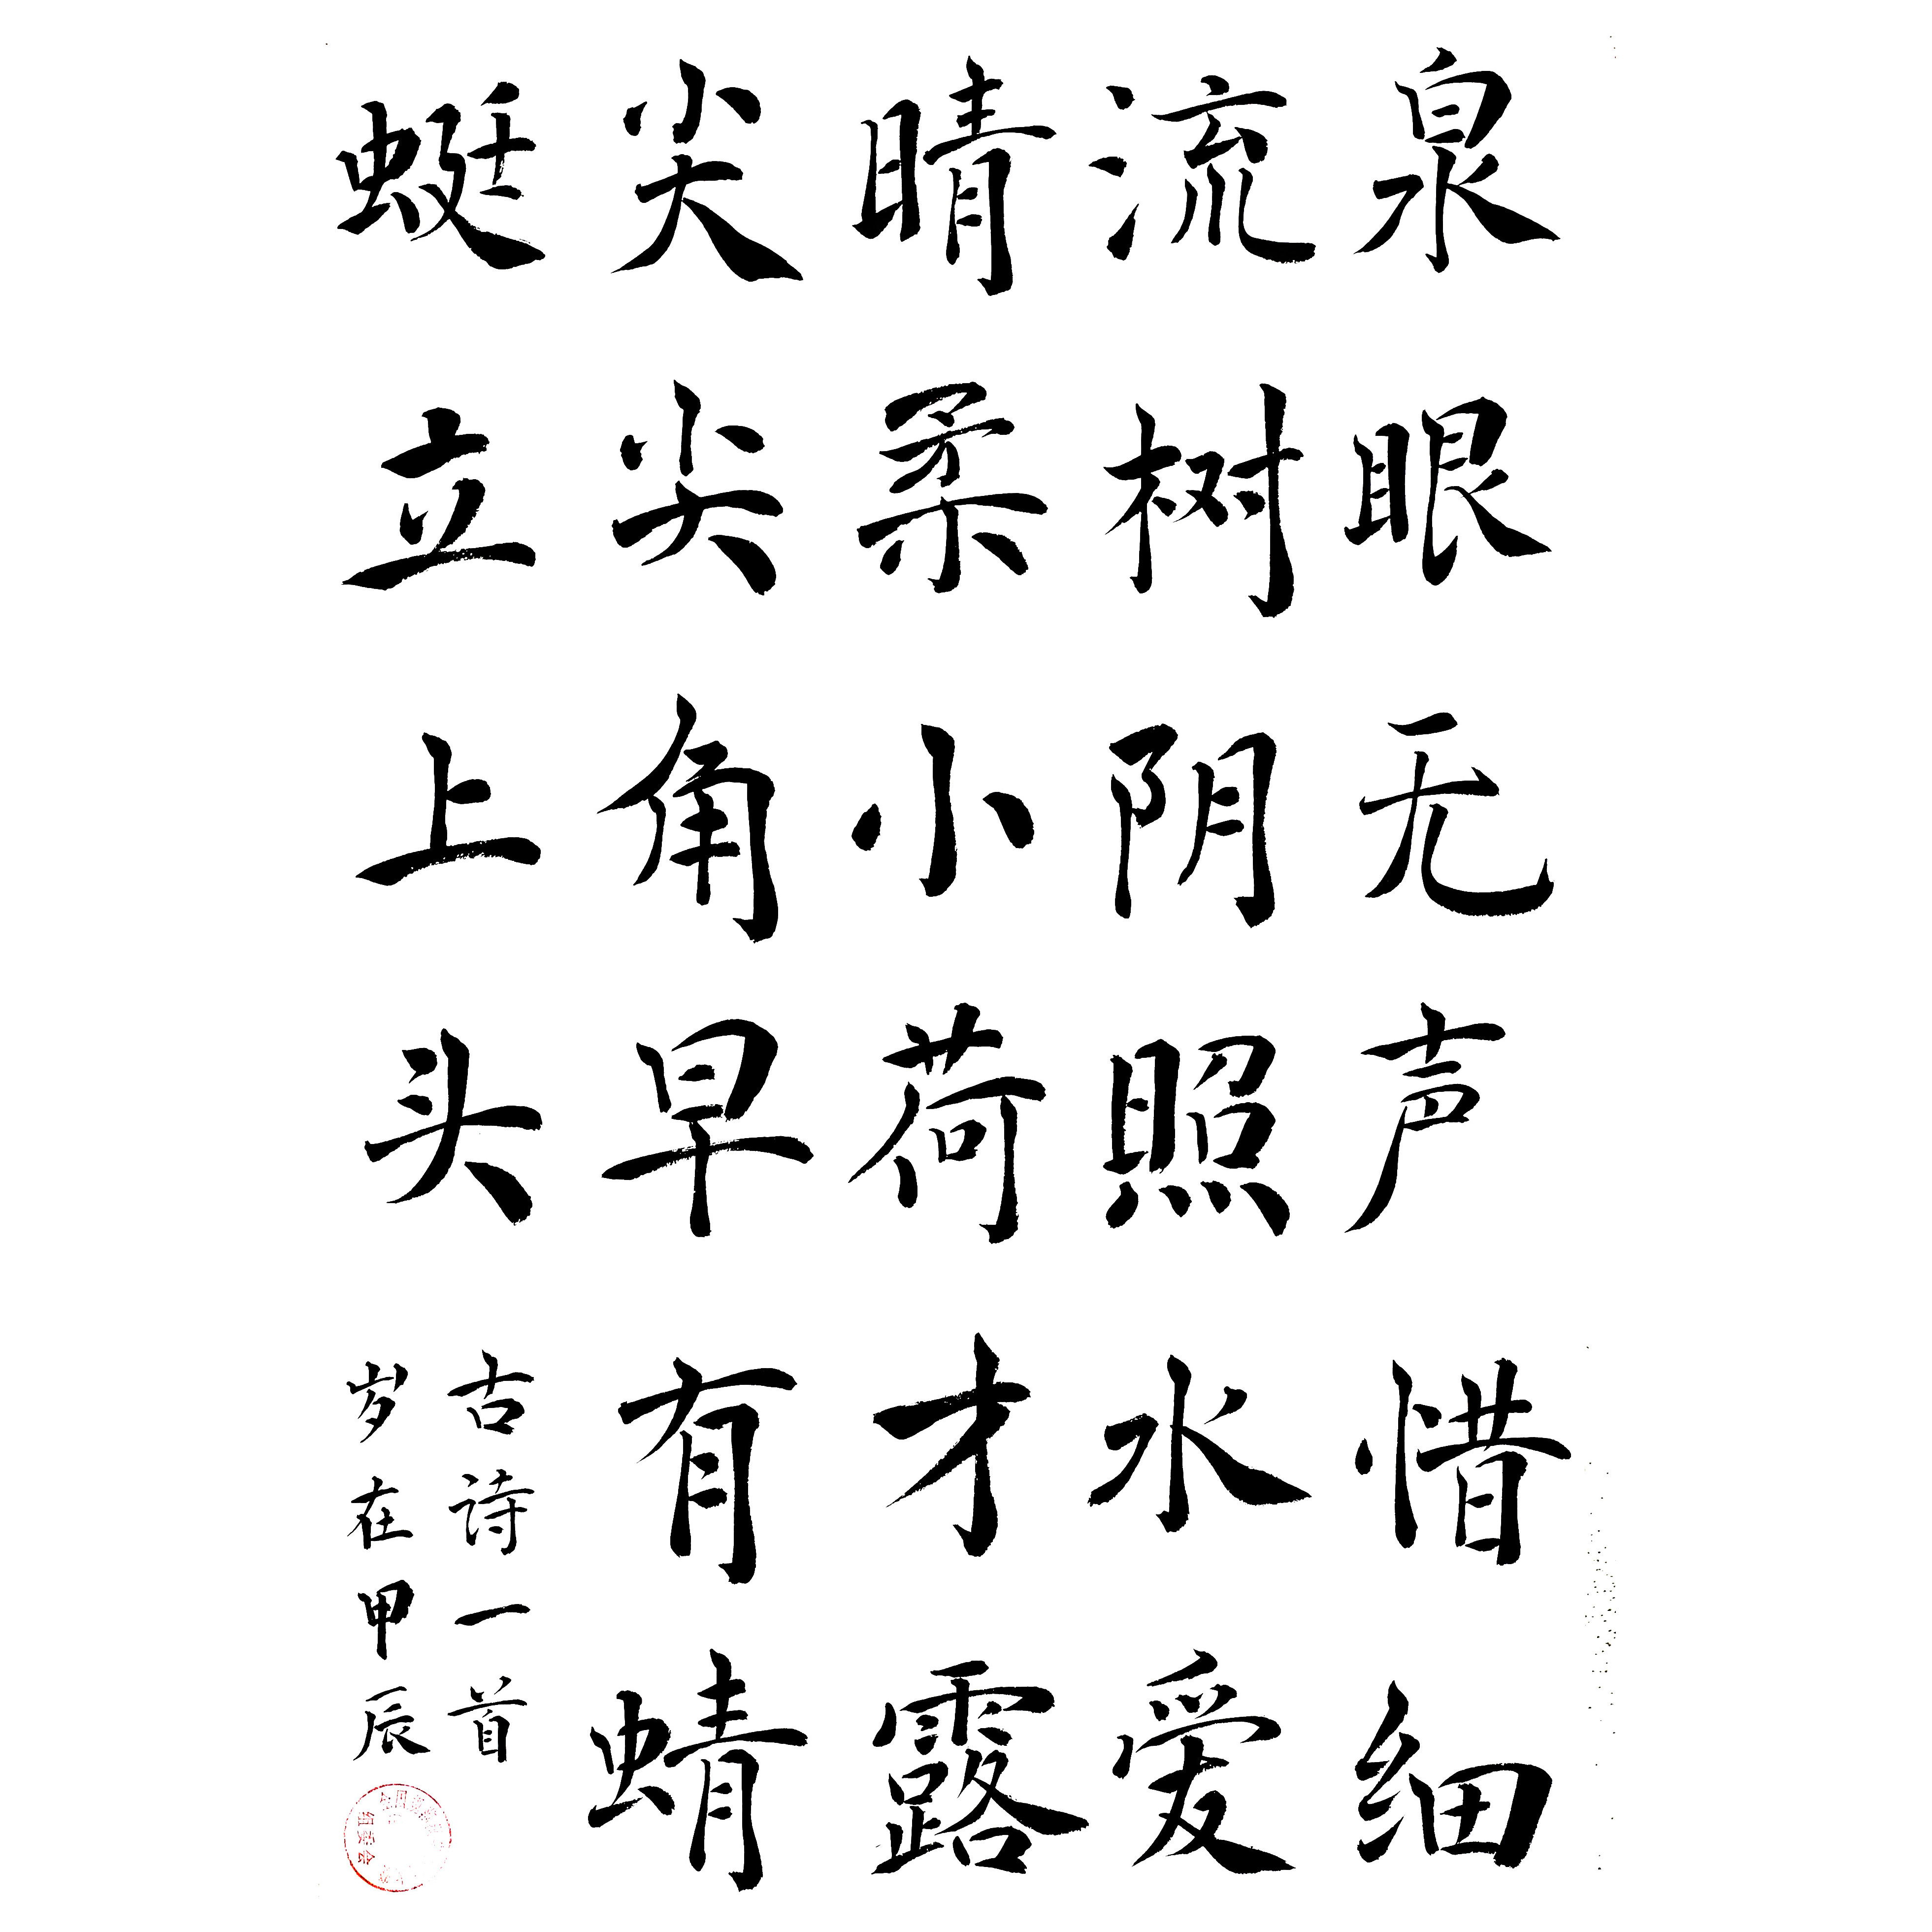 泉眼无声惜细
流树阴照水爱
晴柔小荷才露
尖尖角早有蜻
蜓立上头
古诗一首
岁在甲辰